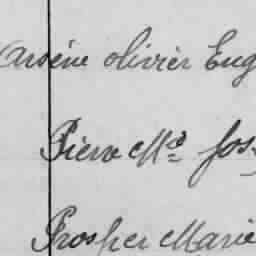 Arsène olivier Eug
Pierre Mie Jos
Prosper Marie